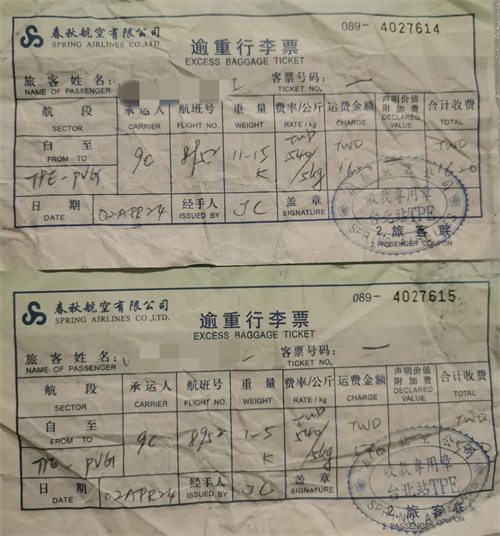 春秋航空有限公司
SPRING AIRLINES CO.,LTD.
089- 4027614
逾重行李票
EXCESS BAGGAGE TICKET
旅客姓名:
NAME OF PASSENGER
客票号码:
TICKET NO.
航段 承运人 航班号 重量 费率/公斤 运费金额 声明价值附加费 合计收费
SECTOR CARRIER FLIGHT NO. WEIGHT RATE / kg CHARGE DECLARED VALUE TOTAL
自 至
FROM TO
9C 8952 11-15 K TWD 540/5kg TWD TWD
TPE - PVG
日期 02APR24 经手人 JC 盖章
DATE ISSUED BY SIGNATURE
收款专用章
台北站TPE
2.旅客联
2.PASSENGER COUPON
春秋航空有限公司
SPRING AIRLINES CO.,LTD.
089- 4027615
逾重行李票
EXCESS BAGGAGE TICKET
旅客姓名:
NAME OF PASSENGER
客票号码:
TICKET NO.
航段 承运人 航班号 重量 费率/公斤 运费金额 声明价值附加费 合计收费
SECTOR CARRIER FLIGHT NO. WEIGHT RATE / kg CHARGE DECLARED VALUE TOTAL
自 至
FROM TO
9C 8952 1-5 K TWD 540/5kg TWD TWD
TPE - PVG
日期 02APR24 经手人 JC 盖章
DATE ISSUED BY SIGNATURE
收款专用章
台北站TPE
2.旅客联
2.PASSENGER COUPON